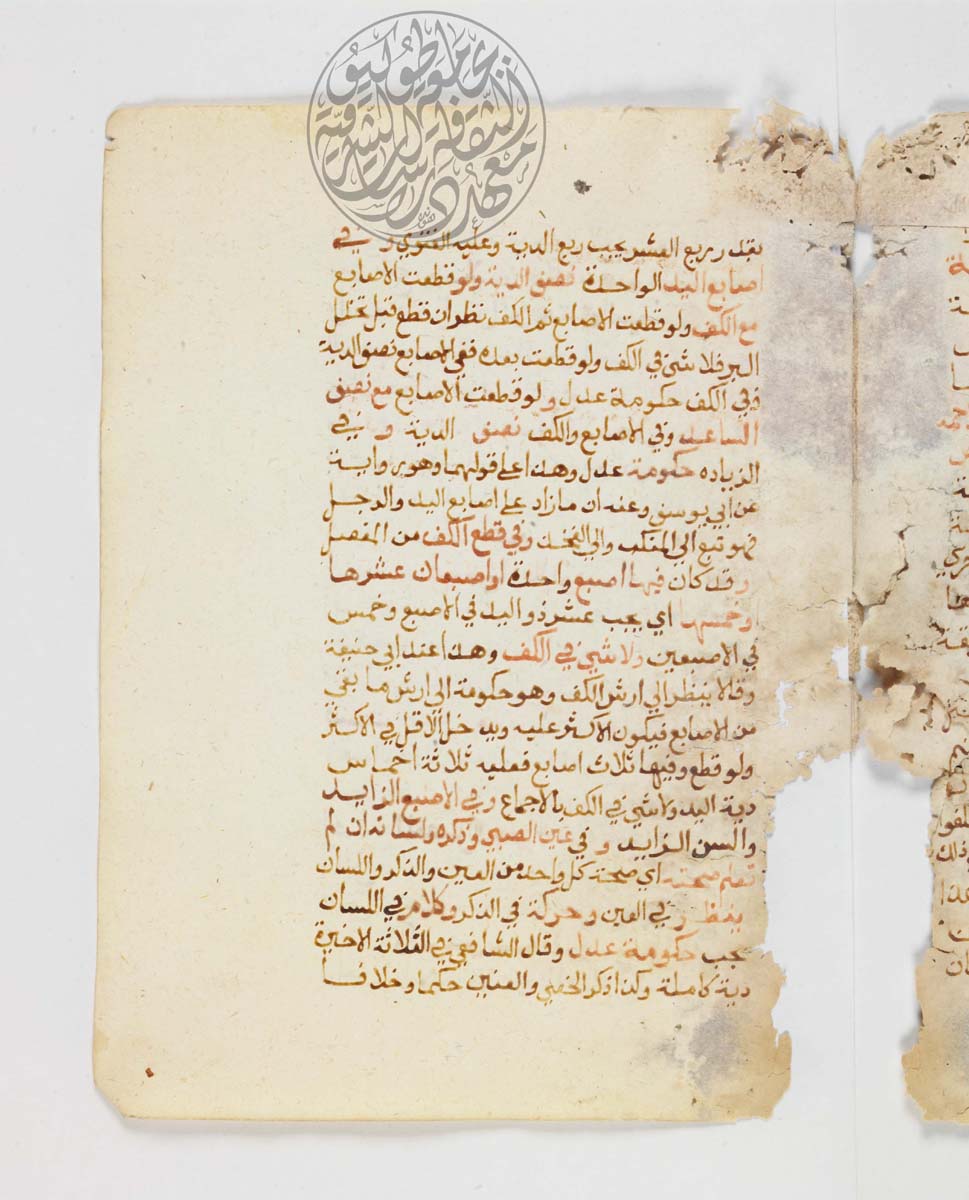 بقدر ربع العشر يجب ربع الدية وعليه الفتوى و في
اصابع اليد الواحدة نصف الدية ولو قطعت الاصابع
مع الكف ولو قطعت الاصابع ثم الكف نظر ان قطع قبل تخلل
البر فلا شئ في الكف ولو قطعت بعده ففي الاصابع نصف الدية
وفي الكف حكومة عدل ولو قطعت الاصابع مع نصف
الساعد وفي الاصابع والكف نصف الدية و في
الزياده حكومة عدل وهذا على قولهما وهو رواية
عن ابي يوسف وعنه ان مازاد على اصابع اليد والرجل
فهو تبع الي المنكب والي الفخذ وفي قطع الكف من المفصل
وقد كان فيها اصبع واحدة او اصبعان عشرها
او خمسها اي يجب عشر ذو اليد في الاصبع وخمس
في الاصبعين ولا شئ في الكف وهذا عند ابي حنيفة
وقالا ينظر الي ارش الكف وهو حكومة الي ارش ما بقي
من الاصابع فيكون الاكثر عليه ويدخل الاقل في الاكثر
ولو قطع وفيها ثلاث اصابع فعليه ثلاثة اخماس
دية اليد ولا شئ في الكف بالاجماع وفي الاصبع الزايد
والسن الزايد و في عين الصبي وذكره ولسانه ان لم
تعلم صحته اي صحة كل واحد من العين والذكر واللسان
بنظر في العين وحركة في الذكر وكلام في اللسان
يجب حكومة عدل وقال الشافعي في الثلاثة الاخيرة
دية كاملة وكذا ذكر الخصي والعنين حكما وخلافا